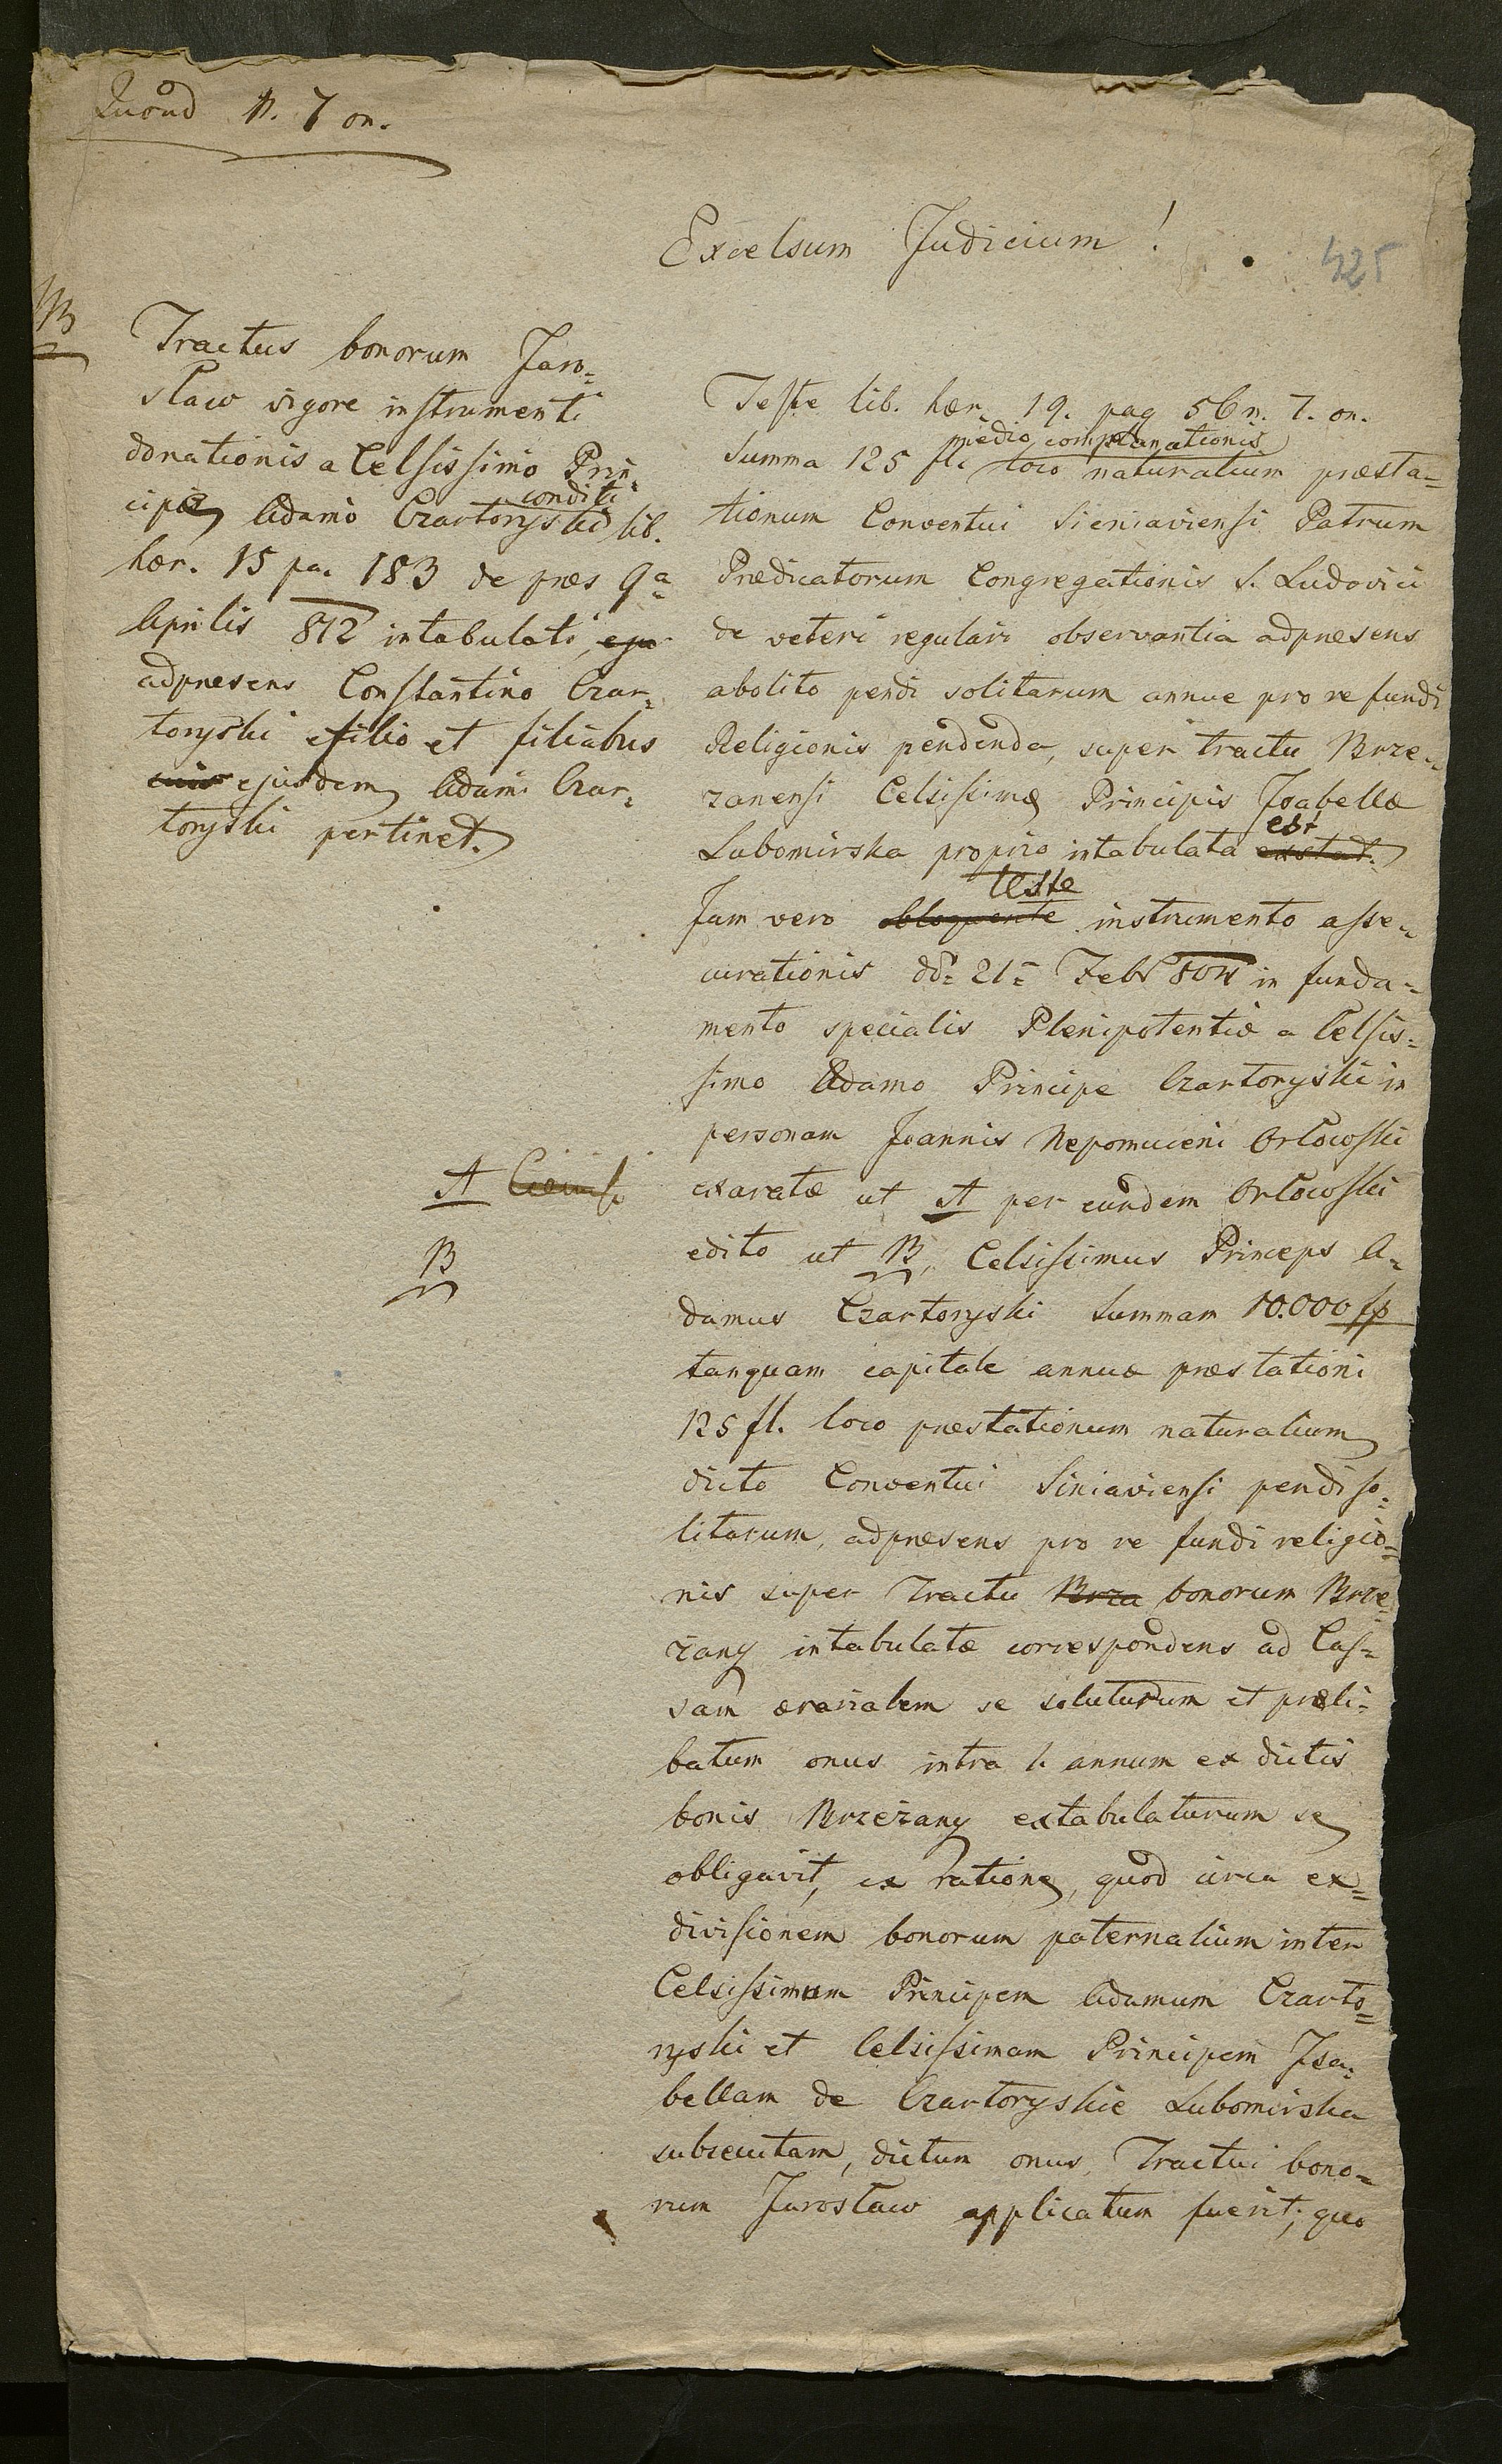 Quoad n. 7 on.
Excelsum Judicium!
425
NB
Tractus bonorum Jaro=
slaw vigore instrumenti
donationis a Celsissimo Prin=
conditi
cipe Adamo Czartoryski lib.
hær. 15 pa. 183 de præs 9a
Aprilis 812 intabulati,
adpræsens Constantino Czar=
toryski filio et filiabus
ejusdem Adami Czar=
toryski pertinet.
Teste lib. hær. 19. pag 56 n. 7. on.
medio complanationis
Summa 125 fl loco naturalium præsta=
tionum Conventui Sieniaviensi Patrum
Prædicatorum Congregationis S. Ludovici
de veteri regulari observantia adpræsens
abolito pendi solitarum annue pro re fundi
Religionis pendenda, super tractu Brze=
zanensi Celsissimæ Principis Isabellæ
est
Lubomirska proprio intabulata exstat.
teste
Jam vero obloquente instrumento asse=
curationis dd= 21= Febr 804 in funda=
mento specialis Plenipotentiæ a Celsis=
simo Adamo Principe Czartoryski in
personam Joannis Nepomuceni Orłowski
A
exaratæ ut A per eundem Orłowski
B
edito ut B, Celsissimus Princeps A=
damus Czartoryski Summam 10.000 fp
tanquam capitale annuæ præstationi
125 fl. loco præstationum naturalium
dicto Conventui Siniaviensi pendi so=
litarum, adpræsens pro re fundi religio=
nis super Tractu Brza bonorum Brze=
zany intabulatæ correspondens ad Cas=
sam ærarialem se soluturum et præli=
batum onus intra 1. annum ex dictis
bonis Brzeżany extabulaturum se
obligavit, ex ratione, quod circa ex=
divisionem bonorum paternalium inter
Celsissimum Principem Adamum Czarto=
ryski et Celsissimam Principem Isa=
bellam de Czartoryskie Lubomirska
subsecutam, dictum onus, Tractui bono=
rum Jarosław applicatum fuerit; quo